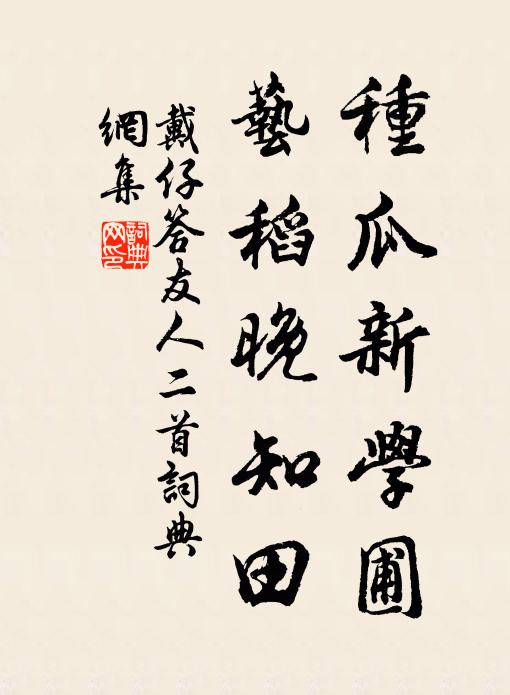 種瓜新學圃
藝稻晚知田
戴仔答友人二首詞典
網集
詞典
网印